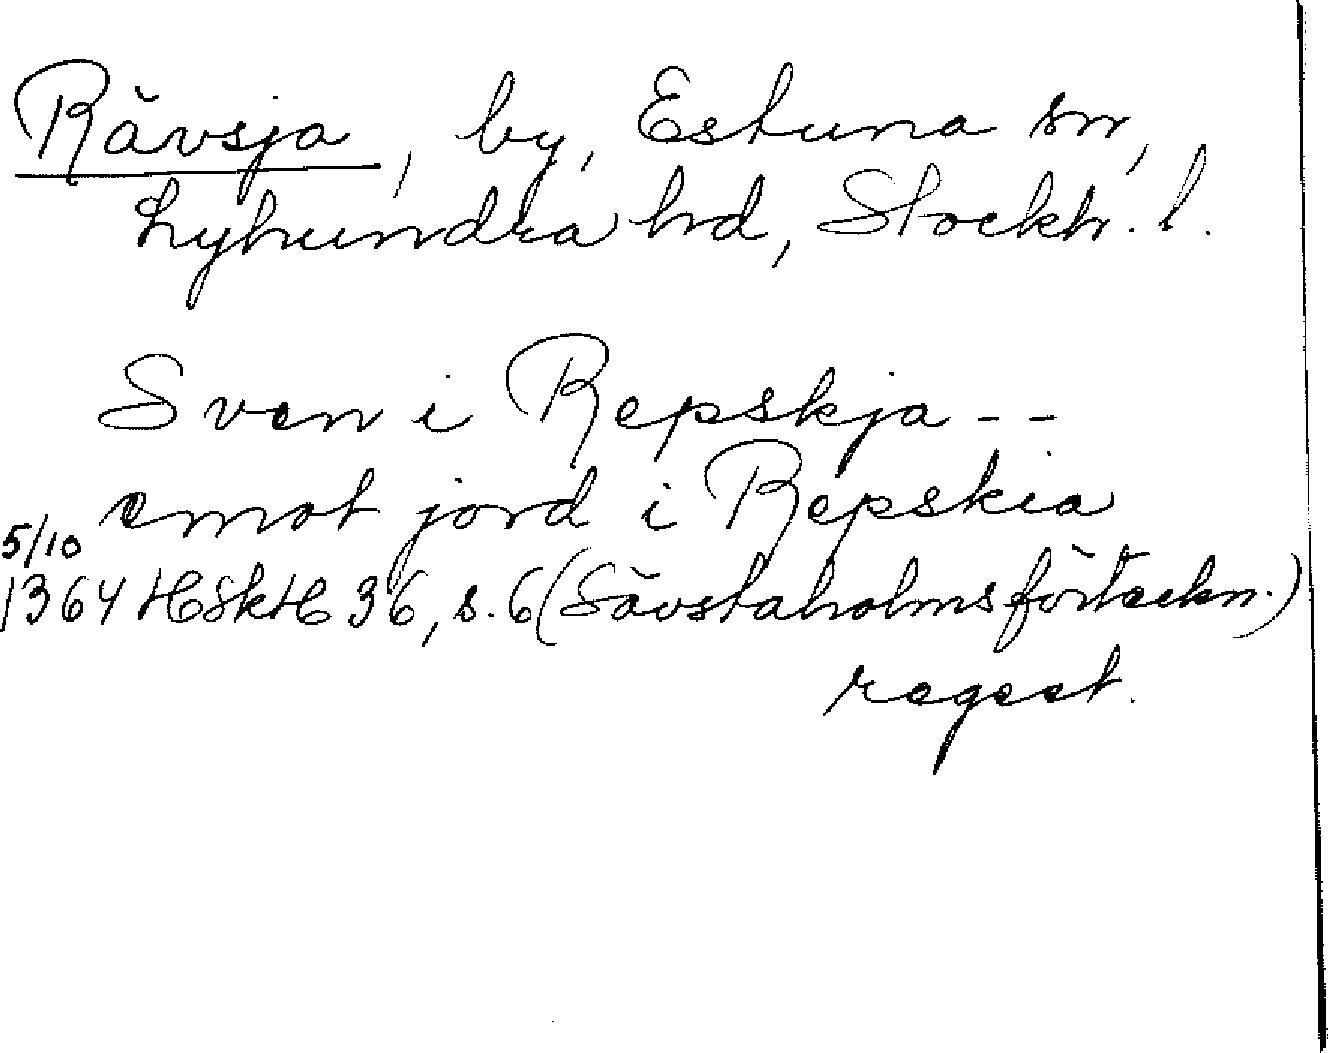 Rävsja, by, Estuna sn,
Lyhundra hd, Stockh. l.
Sven i Repskja - -
emot jord i Repskia
5/10
1364 HSkH 36, s. 6 (Sävstaholmsförteckn.)
regest.